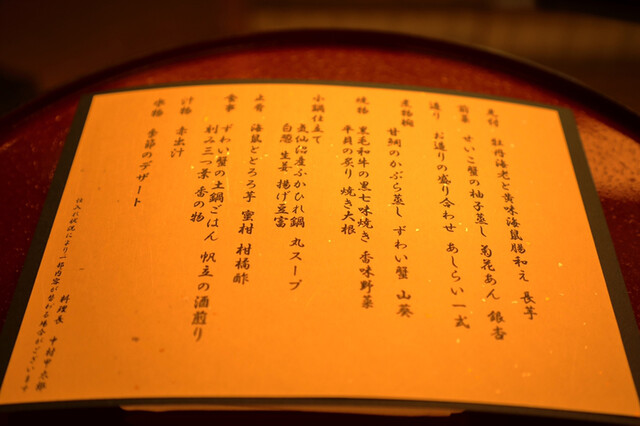 先付　牡丹海老と黄味海鼠腸和え　長芋
前菜　せいこ蟹の柚子蒸し　菊花あん　銀杏
造り　お造りの盛り合わせ　あしらい一式
煮物椀　甘鯛のかぶら蒸し　ずわい蟹　山葵
焼物　黒毛和牛の黒七味焼き　香味野菜
平貝の炙り　焼き大根
小鍋仕立て
気仙沼産ふかひれ鍋　丸スープ
白葱　生姜　揚げ豆富
止肴　海鼠ととろろ芋　蜜柑　柑橘酢
食事　ずわい蟹の土鍋ごはん　帆立の酒煎り
刻み三つ葉　香の物
汁物　赤出汁
水物　季節のデザート
仕入れ状況により一部内容が替わる場合がございます
料理長　中村